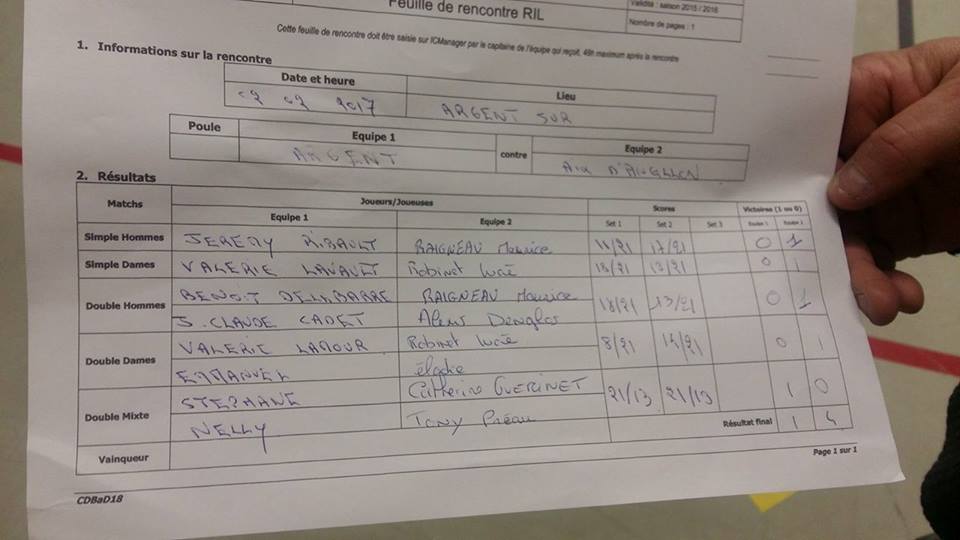 Feuille de rencontre RIL
Validité : saison 2015 / 2016
Nombre de pages : 1
Cette feuille de rencontre doit être saisie sur ICManager par le capitaine de l'équipe qui reçoit, 48h maximum après la rencontre
1. Informations sur la rencontre
Date et heure Lieu
02 02 2017 ARGENT SUR
Poule Equipe 1 contre Equipe 2
ARGENT AIX D'ANGILLON
2. Résultats
Matchs Joueurs/Joueuses Scores Victoires (1 ou 0)
Equipe 1 Equipe 2 Set 1 Set 2 Set 3 Equipe 1 Equipe 2
Simple Hommes JEREMY RIBAULT RAIGNEAU Maurice 11/21 17/21 0 1
Simple Dames VALERIE Robinet Lucie /21 13/21 0 1
Double Hommes BENOIT DELABARRE RAIGNEAU Maurice 18/21 13/21 0 1
J. CLAUDE CADET Alexis
Double Dames VALERIE LAMOUR Robinet Lucie 8/21 14/21 0 1
élodie
Double Mixte STEPHANE Catherine GUERINET 21/13 21/19 1 0
NELLY Tony Préau
Résultat final 1 4
Vainqueur
CDBaD18
Page 1 sur 1